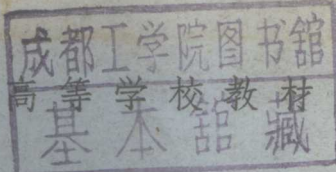 成都工学院图书舘
高等学校教材
基本舘藏